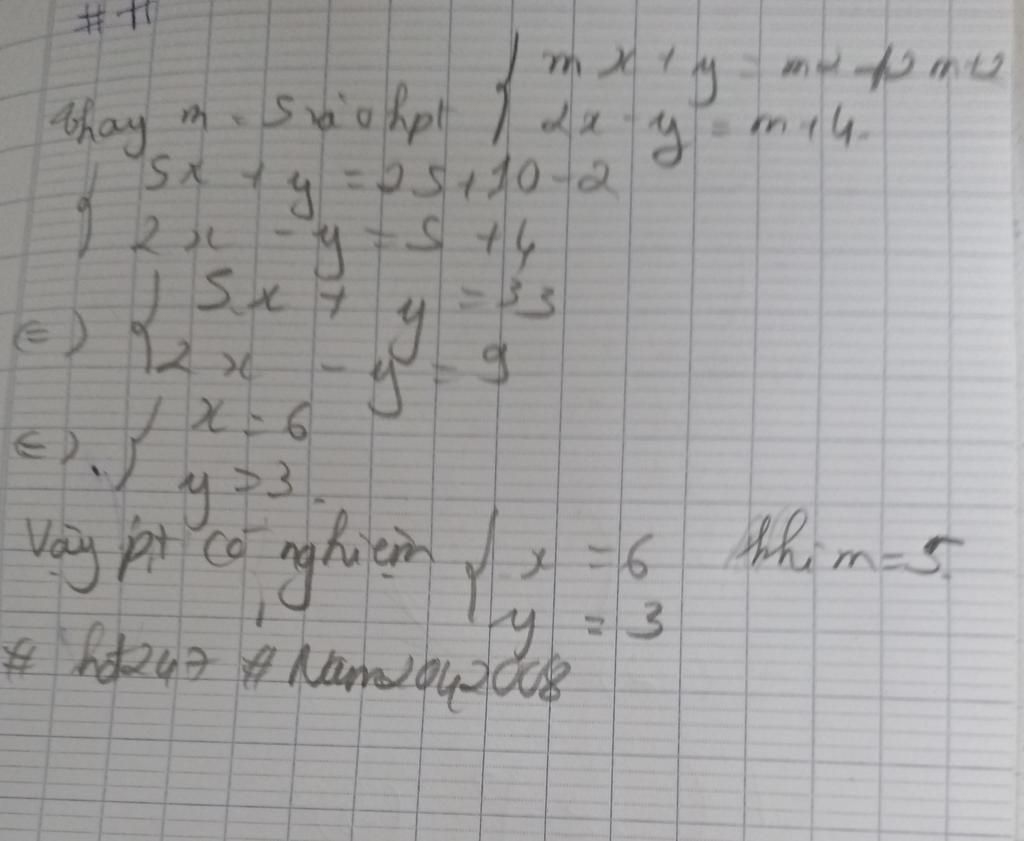 # #
{ mx + y = m+2
thay m = 5 vào hpt { 2x - y = m+4.
{ 5x + y = 25+10-2
2x - y = 5+4
<=> { 5x + y = 33
2x - y = 9
<=> { x = 6
y = 3.
Vậy pt có nghiệm { x = 6 khi m = 5.
y = 3
# hd247 # Nam2042008